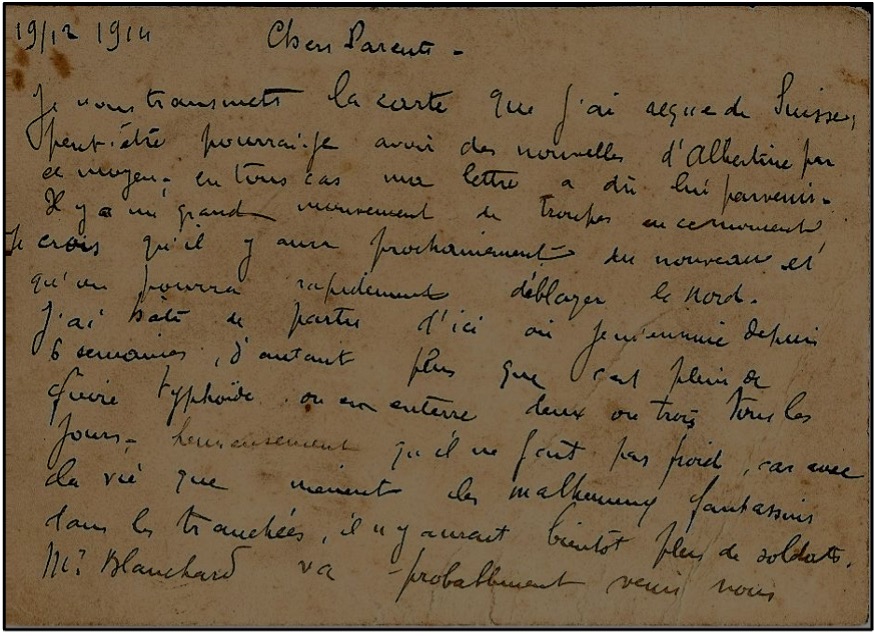 19/12 1914 Chers Parents -
Je vous transmets la carte que j'ai reçue de Suisse,
peut-être pourrai-je avoir des nouvelles d'Albertine par
ce moyen, en tous cas ma lettre a dû lui parvenir -
Il y a un grand mouvement de troupes en ce moment
Je crois qu'il y aura prochainement du nouveau et
qu'on pourra rapidement déblayer le Nord -
J'ai hâte de partir d'ici où je m'ennuie depuis
6 semaines, d'autant plus que c'est plein de
fièvre typhoïde on en enterre deux ou trois tous les
jours - heureusement qu'il ne fait pas froid, car avec
la vie que mènent les malheureux fantassins
dans les tranchées, il n'y aurait bientôt plus de soldats.
Mr Blanchard va probablement venir nous